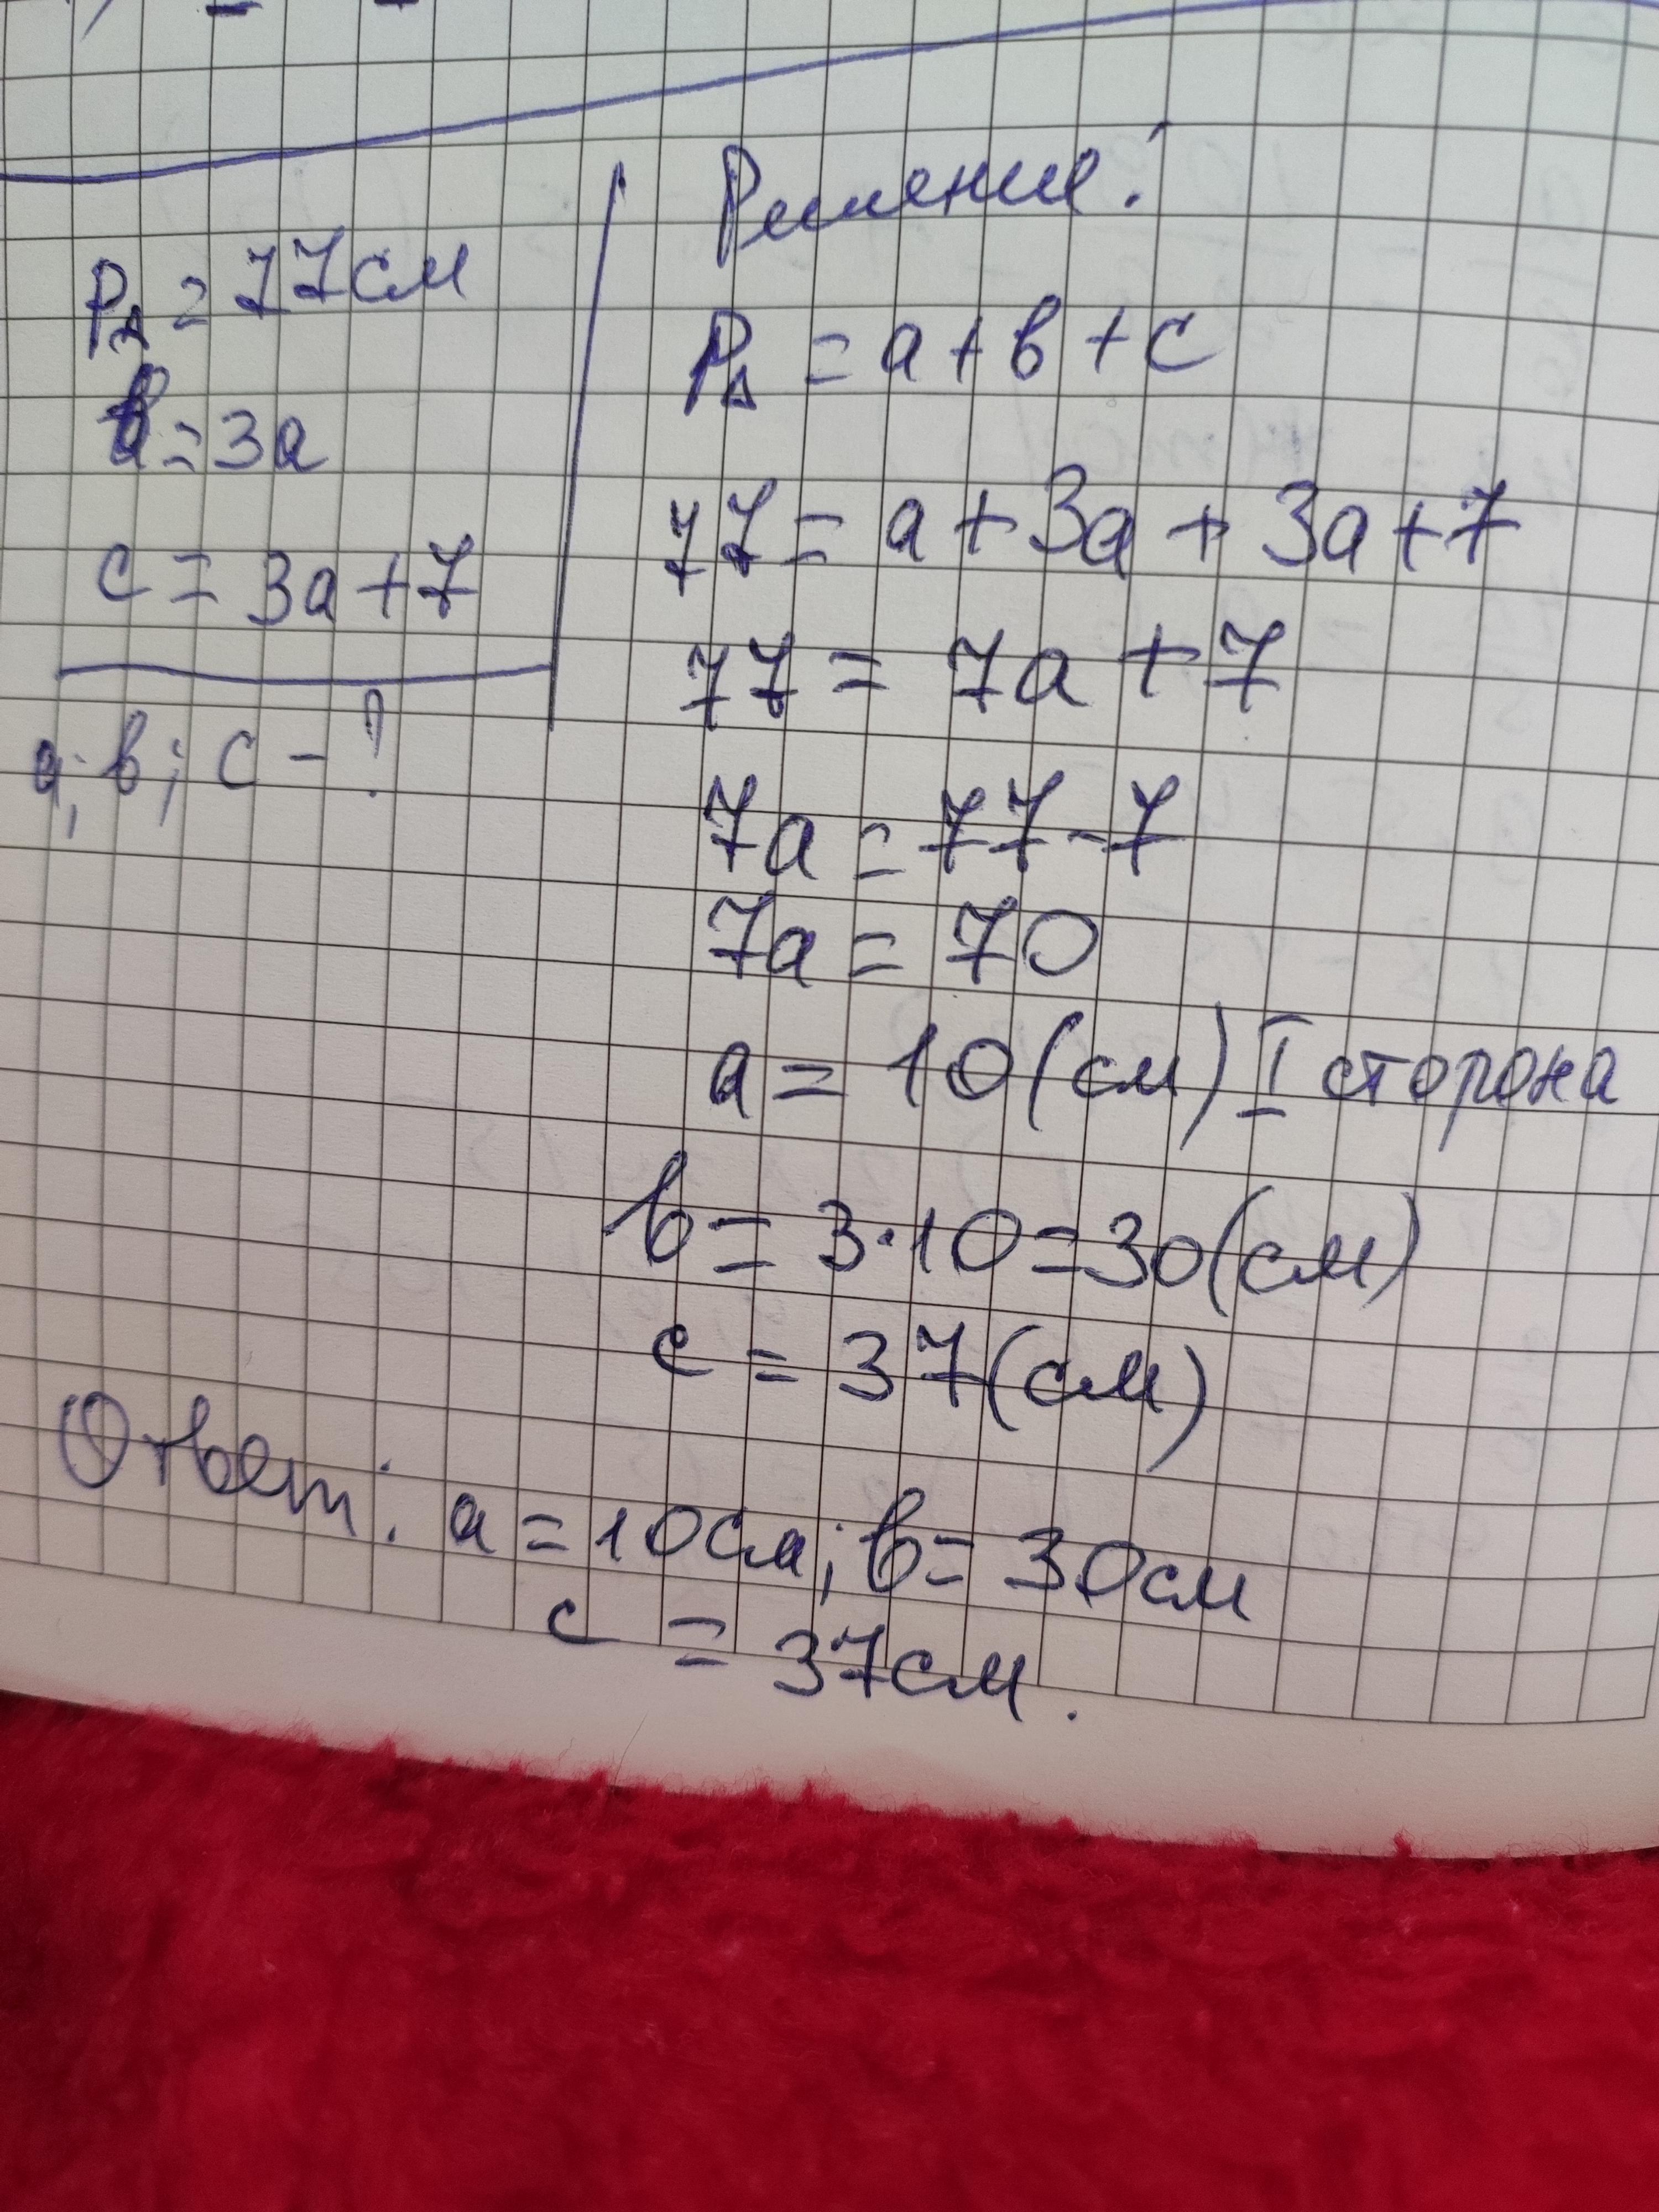 P∆ = 77см
в = 3а
с = 3а + 7
а; в; с - ?
Решение:
P∆ = а + в + с
77 = а + 3а + 3а + 7
77 = 7а + 7
7а = 77 - 7
7а = 70
а = 10 (см) I сторона
в = 3 · 10 = 30 (см)
с = 37 (см)
Ответ: а = 10см; в = 30см
с = 37см.